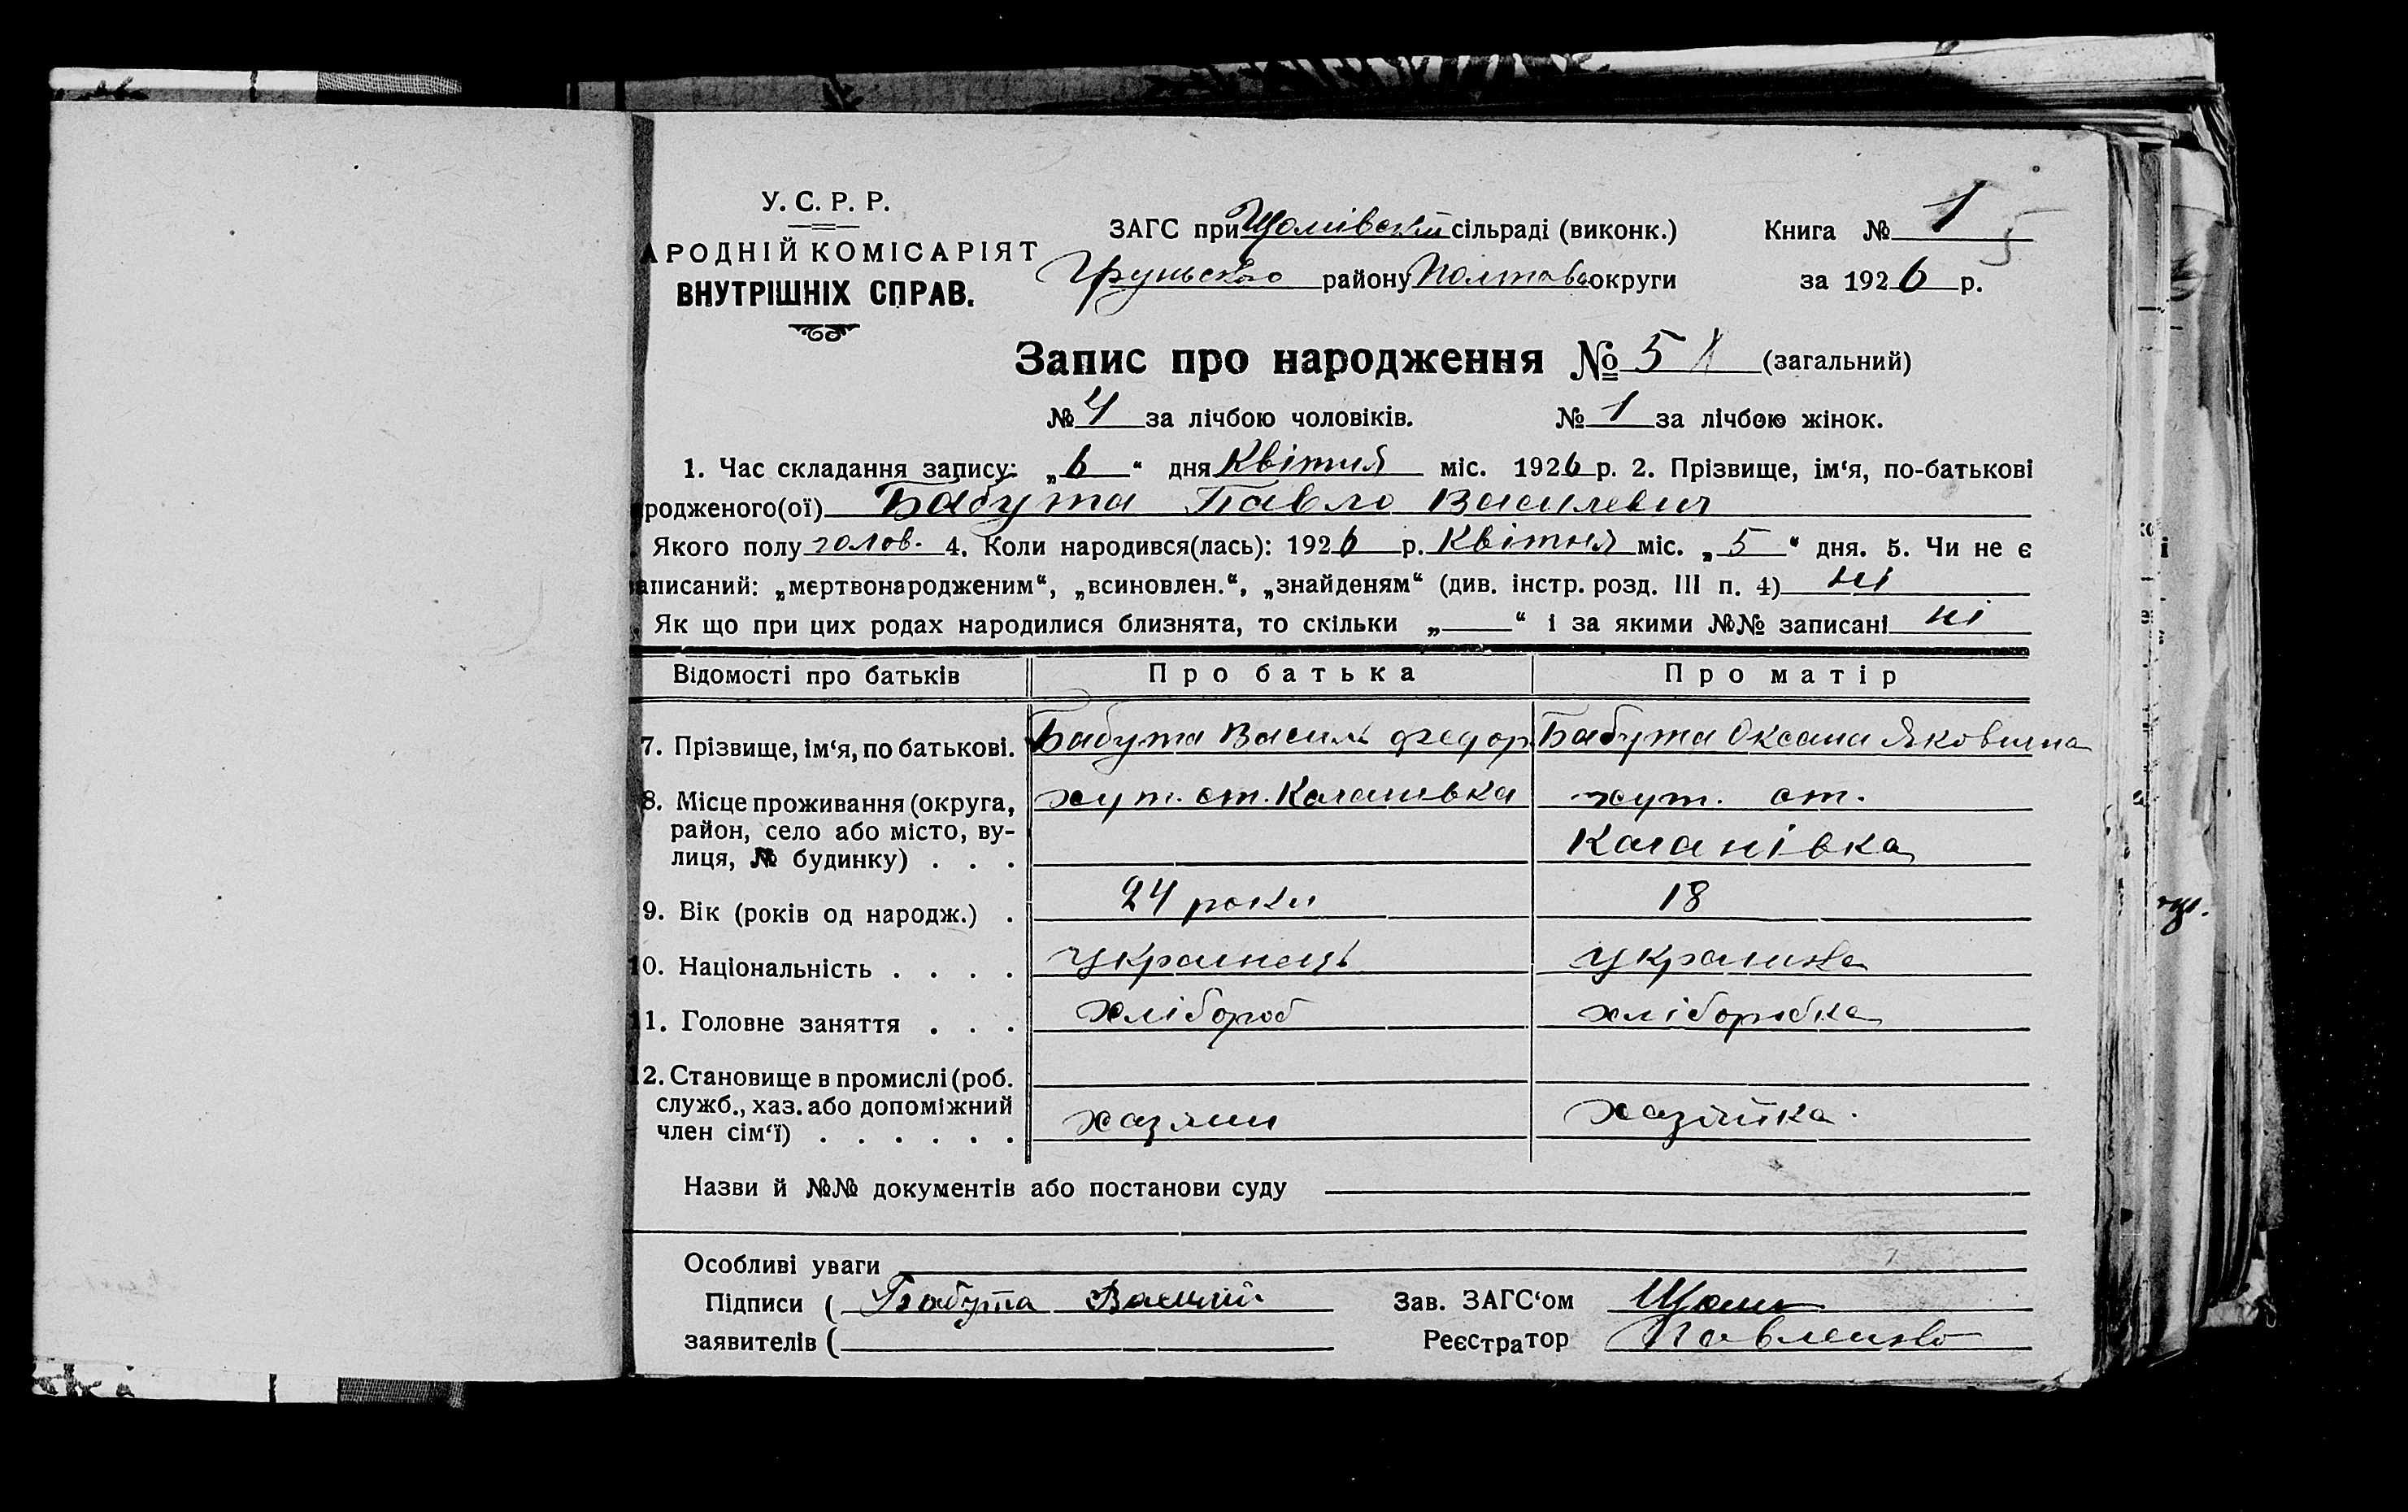 У. С. Р. Р.
АРОДНІЙ КОМІСАРІЯТ
ВНУТРІШНІХ СПРАВ.
ЗАГС при сільраді (виконк.)
Грунського району Полтавс округи
Книга № 1
за 1926 р.
Запис про народження № 5 (загальний)
№ 4 за лічбою чоловіків. № 1 за лічбою жінок.
1. Час складання запису: „6“ дня Квітня міс. 1926 р. 2. Прізвище, ім‘я, по-батькові
родженого(ої) Бабута Павло Василевич
Якого полу чолов. 4. Коли народився(лась): 1926 р. Квітня міс. „5“ дня. 5. Чи не є
аписаний: „мертвонародженим“, „всиновлен.“, „знайденям“ (див. інстр. розд. III п. 4) ні
Як що при цих родах народилися близнята, то скільки „ “ і за якими №№ записані ні
Відомості про батьків Про батька Про матір
7. Прізвище, ім‘я, по батькові. Бабута Василь Федор Бабута Оксана Яковична
8. Місце проживання (округа, район, село або місто, вулиця, № будинку) . . . хут. ст. хут. ст.
9. Вік (років од народж.) . 24 роки 18
10. Національність . . . . Українець Українка
11. Головне заняття . . . хлібороб хліборобка
12. Становище в промислі (роб. служб., хаз. або допоміжний член сім‘ї) . . . . . . хазяин хазяйка.
Назви й №№ документів або постанови суду
Особливі уваги
Підписи ( Бабута Василий Зав. ЗАГС‘ом
заявителів ( Реєстратор Павленко